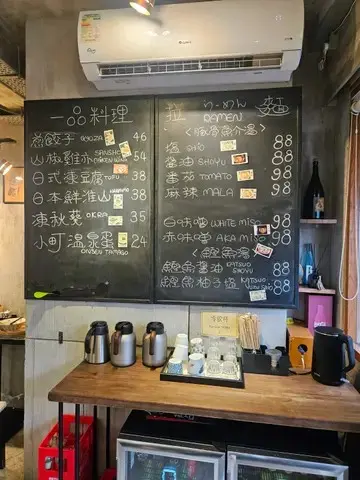 一品料理
煎餃子 GYOZA 46
山椒雞亦 SANSHO CHICKEN WING 54
日式凍豆腐 TOFU 38
日本鮮淮山 38
凍秋葵 OKRA 35
小町温泉蛋 ONSEN TAMAGO 24
拉 らーめん 麵
RAMEN
<豚骨魚介湯>
塩 SHIO 88
醬油 SHOYU 88
番茄 TOMATO 98
麻辣 MALA 98
白味噌 WHITE MISO 98
赤味噌 AKA MISO 98
<鰹魚湯>
鰹魚醬油 KATSUO SHOYU 88
鰹魚柚子塩 KATSUO YUZU SHIO 88